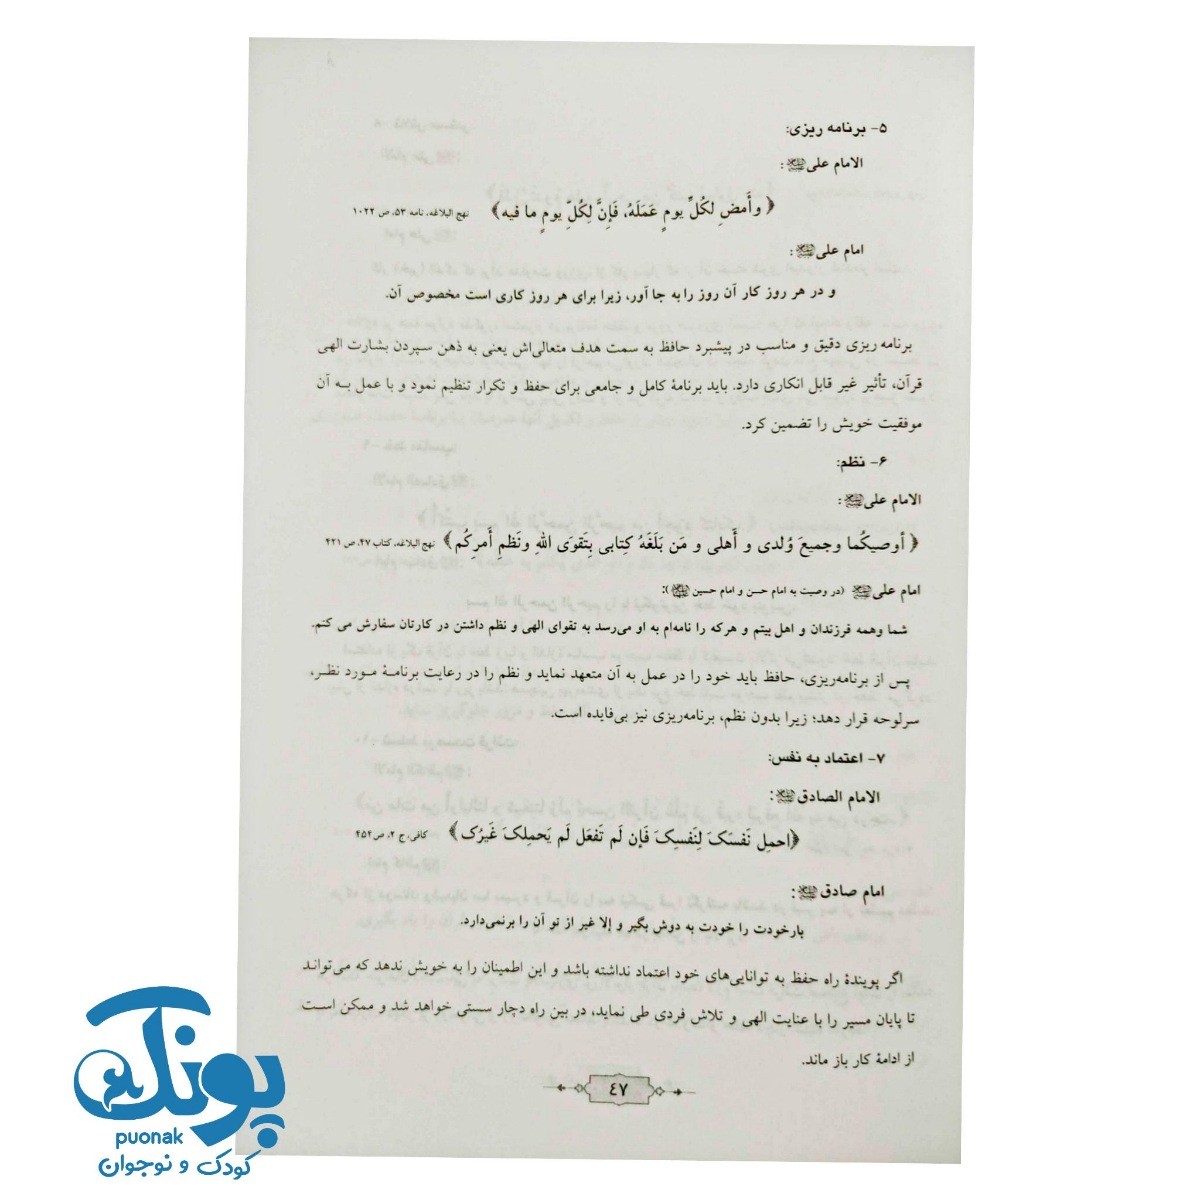 ۵- برنامه ریزی:
الامام علی:
﴿وأَمضِ لِکُلِّ یومٍ عَمَلَهُ، فَإِنَّ لِکُلِّ یومٍ ما فیه﴾ نهج البلاغه، نامه ۵۳، ص ۱۰۲۲
امام علی:
و در هر روز کار آن روز را به جا آور، زیرا برای هر روز کاری است مخصوص آن.
برنامه ریزی دقیق و مناسب در پیشبرد حافظ به سمت هدف متعالی‌اش یعنی به ذهن سپردن بشارت الهی
قرآن، تأثیر غیر قابل انکاری دارد. باید برنامهٔ کامل و جامعی برای حفظ و تکرار تنظیم نمود و با عمل به آن
موفقیت خویش را تضمین کرد.
۶- نظم:
الامام علی:
﴿أوصیکُما وجمیعَ وُلدی و أَهلی و مَن بَلَغَهُ کِتابی بِتَقوَی اللهِ ونَظمِ أَمرِکُم﴾ نهج البلاغه، کتاب ۴۷، ص ۴۲۱
امام علی (در وصیت به امام حسن و امام حسین):
شما وهمه فرزندان و اهل بیتم و هرکه را نامه‌ام به او می‌رسد به تقوای الهی و نظم داشتن در کارتان سفارش می کنم.
پس از برنامه‌ریزی، حافظ باید خود را در عمل به آن متعهد نماید و نظم را در رعایت برنامهٔ مورد نظر،
سرلوحه قرار دهد؛ زیرا بدون نظم، برنامه‌ریزی نیز بی‌فایده است.
۷- اعتماد به نفس:
الامام الصادق:
﴿احمِل نَفسَکَ لِنَفسِکَ فَإن لَم تَفعَل لَم یَحمِلکَ غَیرُک﴾ کافی، ج ۲، ص ۴۵۴
امام صادق:
بارخودت را خودت به دوش بگیر و إلا غیر از تو آن را برنمی‌دارد.
اگر پویندهٔ راه حفظ به توانایی‌های خود اعتماد نداشته باشد و این اطمینان را به خویش ندهد که می‌تواند
تا پایان مسیر را با عنایت الهی و تلاش فردی طی نماید، در بین راه دچار سستی خواهد شد و ممکن است
از ادامهٔ کار باز ماند.
٤٧
پونک
puonak
کودک و نوجوان